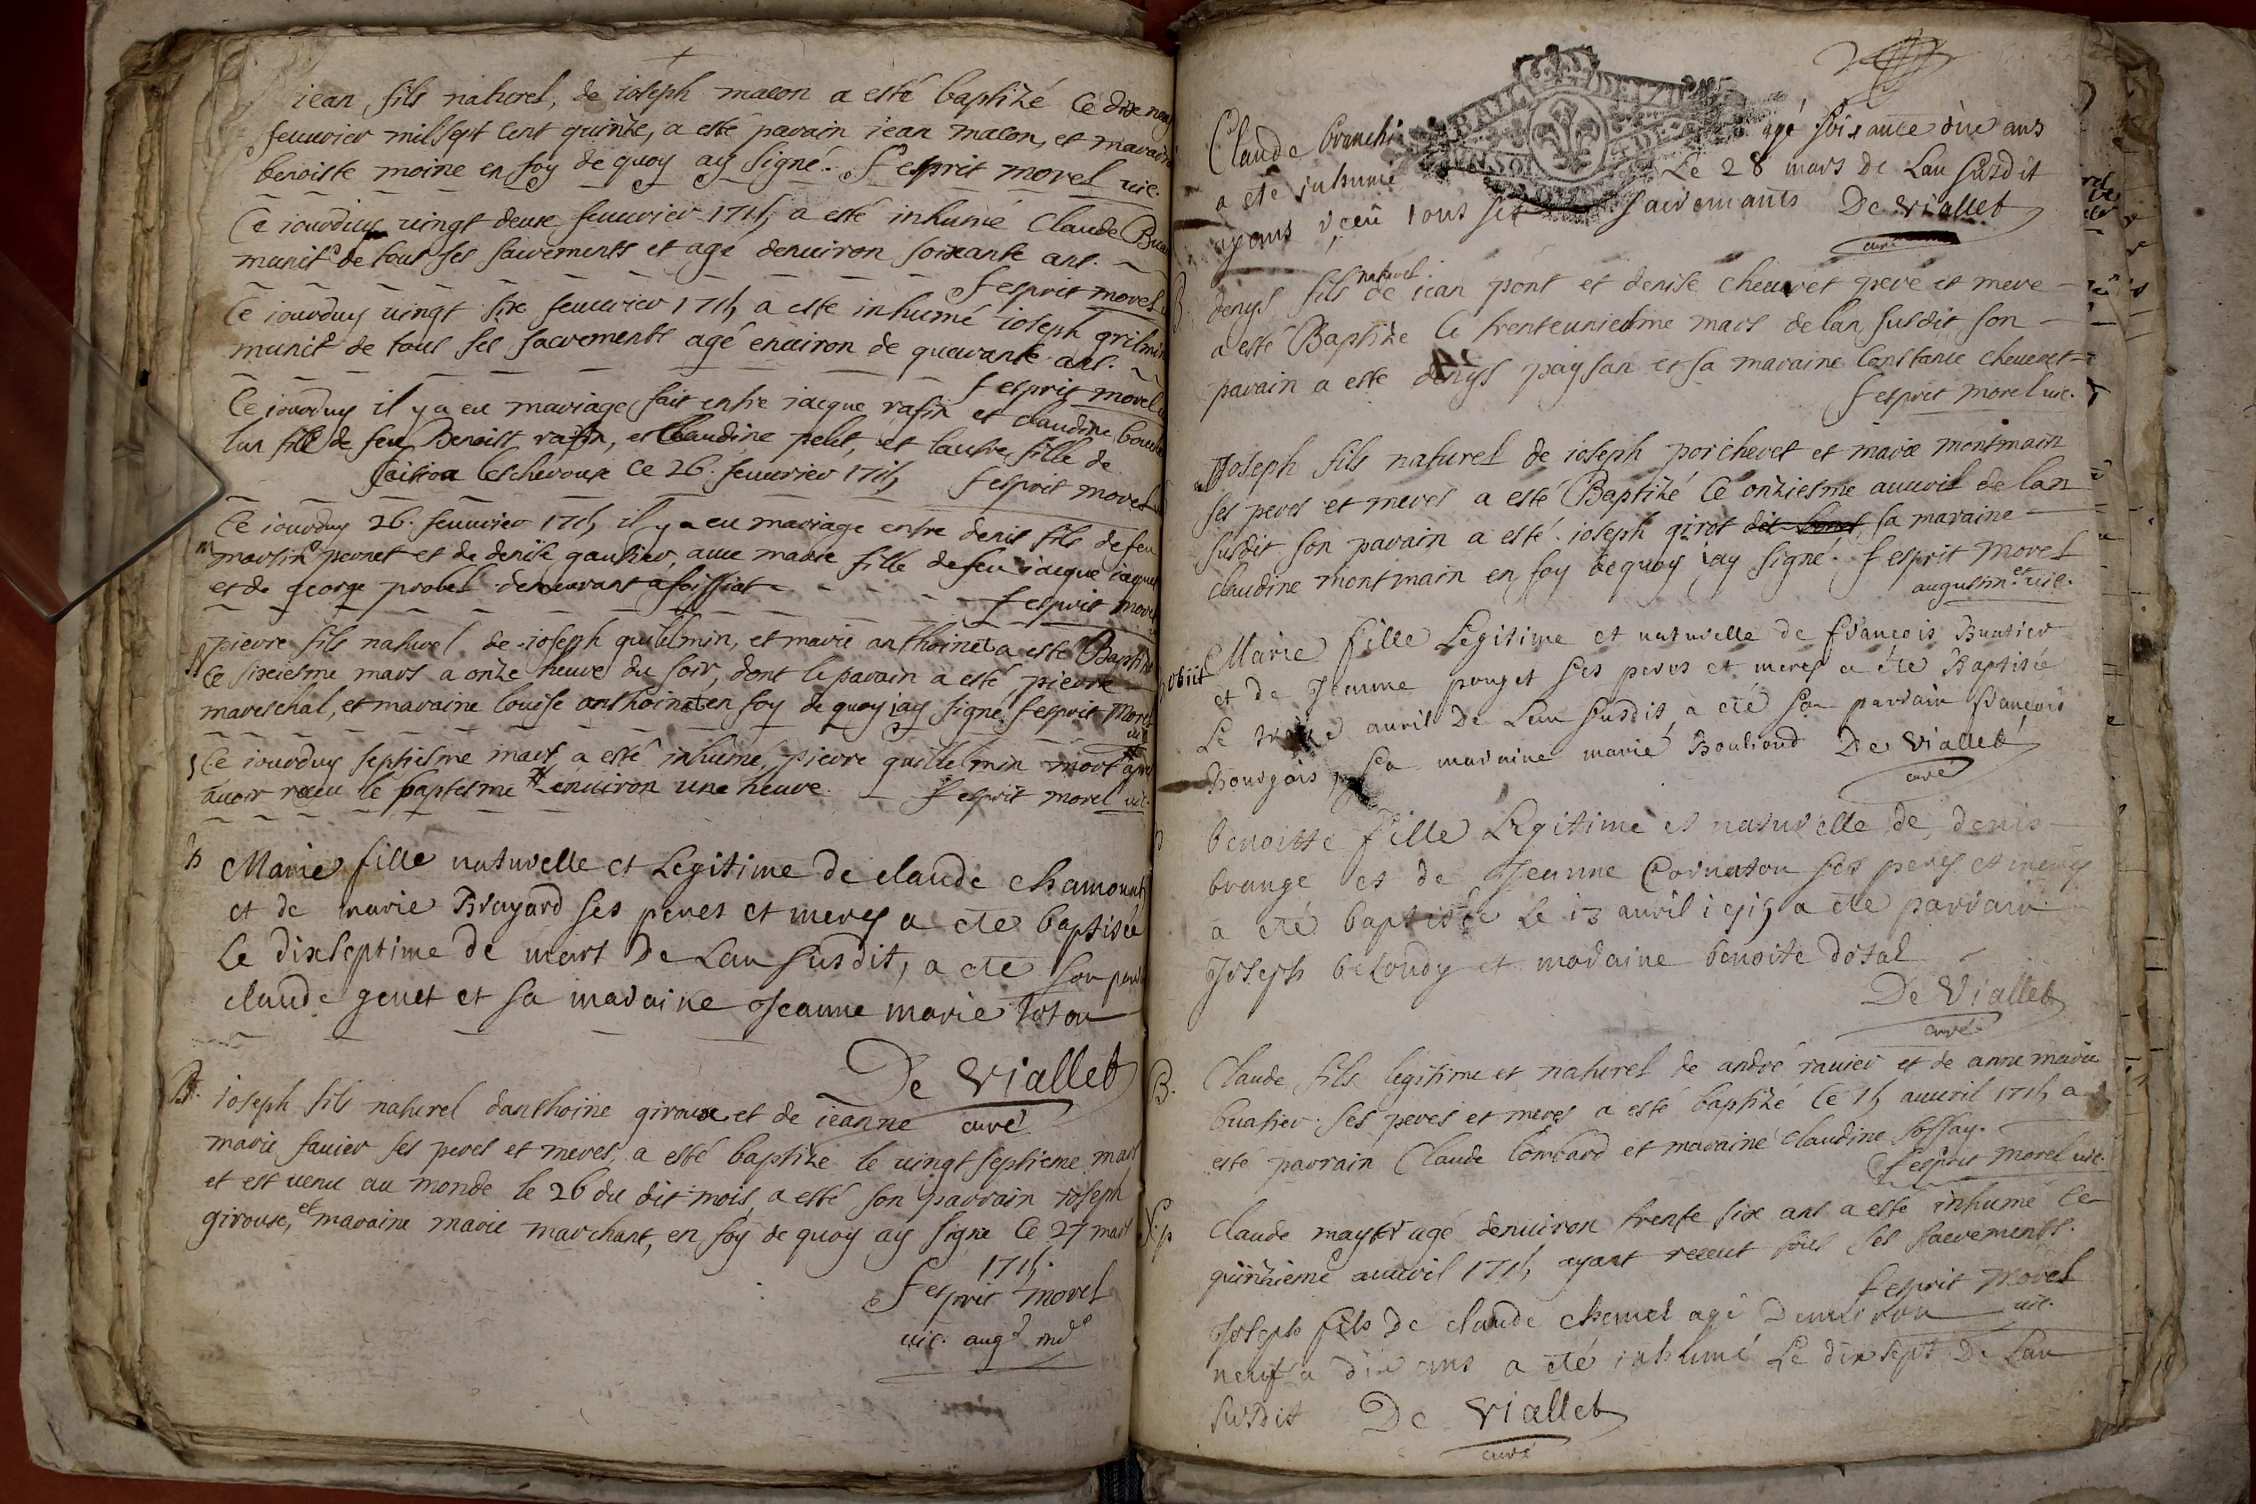 iean fils naturel, de ioseph macon a esté baptizé ce dix neuf
feuurier mil sept cent quinze, a esté parain iean macon, et maraine
benoiste moine en foy de quoy ay signé. f esprit morel vic.
Ce iourduy vingt deux feuurier 1715 a esté inhumé Claude
munit de tout ses sacrements et agé denuiron soixante ans.
f esprit morel
Ce iourduy vingt six feuurier 1715 a esté inhumé ioseph grilmin
munit de tous ses sacrements agé enuiron de quarante ans.
f esprit morel
Ce iourduy il y a eu mariage fait entre iacque rafin et claudine
lun fils de feu Benoist rafin, et Claudine pelit, et lautre fille de
ce 26. feuurier 1715 f esprit morel
Ce iourduy 26. feuurier 1715 il y a eu mariage entre denis fils de feu
m
martin pernet et de denise gautier, auec marie fille de feu iacque
et de george probel demeurant a foissiat
f esprit morel
pierre fils naturel de ioseph guillelmin, et marie anthoinet a esté Baptizé
ce sixiesme mars a onze heure du soir, dont le parain a esté pierre
mareschal, et maraine louise anthoinet en foy de quoy iay signé f esprit Morel
vic
Ce iourduy septiesme mars a esté inhumé, pierre guillelmin mort apres
auoir receu le baptesme enuiron une heure. f esprit morel vic.
b Marie fille naturelle et Legitime de claude chamouat
et de marie Brayard ses peres et meres a eté baptisée
Le dixseptime de mars De Lan susdit, a eté son par
claude genet et sa maraine Jeanne marie
De Viallet
curé
B. ioseph fils naturel danthoine giroux et de ieanne
marie fauier ses peres et meres, a esté baptize le vingt septieme mars
et est venu au monde le 26 du dit mois, a esté son parrain ioseph
giroux, et maraine marie marchant, en foy de quoy ay signe ce 27 mars
1715.
f esprit morel
vic. aug
Claude agé soisante ans
a eté inhumé Le 28 mars de Lan susdit
ayans receu tous ses sacremants De Viallet
curé
B denys fils naturel de iean pont et denise cheuret pere et mere
a esté Baptize Ce trenteuniesme mars de lan susdit son
parain a esté denys paysan et sa maraine Constance cheueret
f esprit morel vic.
Joseph fils naturel de ioseph porcheret et marie montmain
ses peres et meres a esté Baptizé Ce onziesme auuril de lan
susdit son parain a esté ioseph girot sa maraine
claudine montmain en foy de quoy iay signé. f esprit Morel
augustin et vic.
obiit Marie fille Legitime et naturelle de françois Buatier
et de Jeanne pouget ses peres et meres a éte Baptisée
Le auril De Lan susdit a eté son parrain françois
Bourgois sa maraine marie De Viallet
curé
benoitte fille Legitime et naturelle de denis
brange et de Jeanne Cornaton ses peres et meres
a eté baptisée Le 13 auril 1715 a eté parrain
Joseph beloudy et maraine benoite dotal
De Viallet
curé
B. Claude fils legitime et naturel de andré rauier et de anne marie
buatier ses peres et meres a esté baptizé Ce 15 auuril 1715 a
esté parrain Claude lombard et maraine claudine
f esprit morel vic.
Sp Claude agé denuiron trente six ans a esté inhumé Ce
quinzieme auuril 1715 ayant receut tous ses sacrements.
f esprit Morel
vic.
Joseph fils De claude chemel agé Denuiron
neuf a dix ans a eté inhumé Le dix sept De Lan
susdit De Viallet
curé